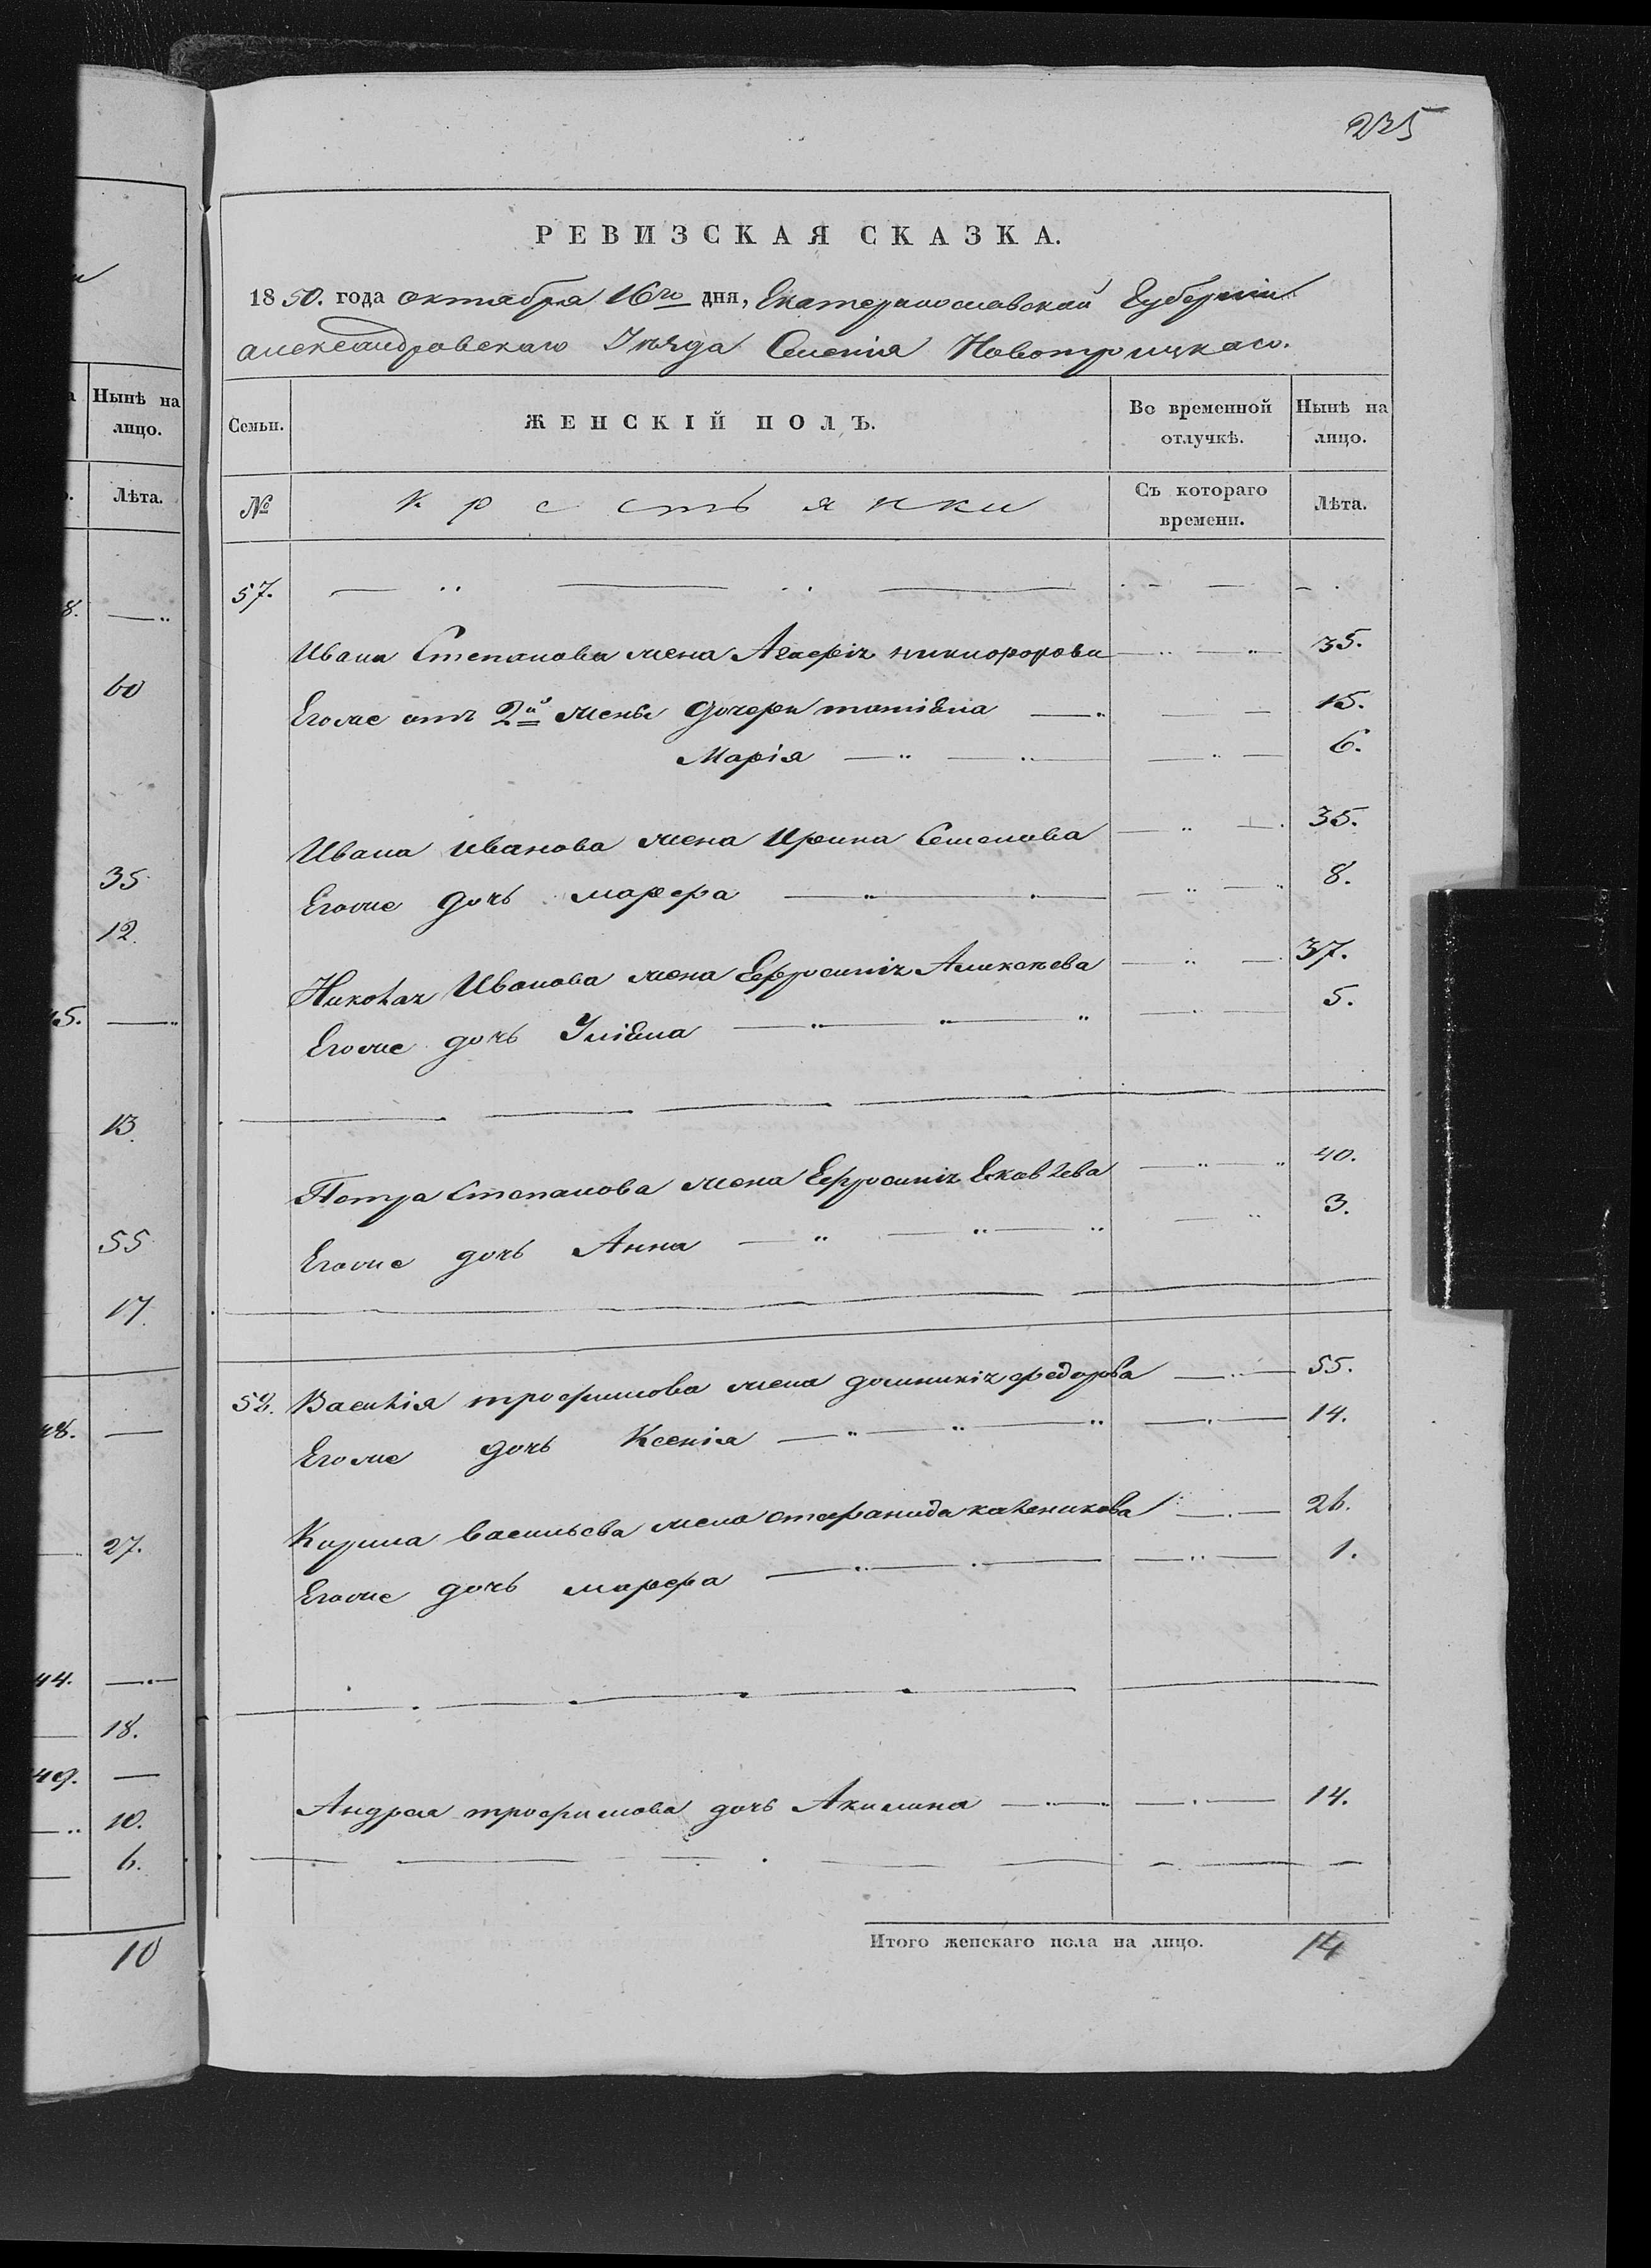 235
РЕВИЗСКАЯ СКАЗКА.
1850. года октября 16го дня, Екатеринославской Губерніи
александровскаго Уѣзда Селенія Новотроицкаго.
Нынѣ на лицо.
Лѣта.
60
35
12.
13.
55
17.
27.
44.
18.
49.
10.
6.
10
Семьи.
ЖЕНСКІЙ ПОЛЪ.
Во временной отлучкѣ.
Нынѣ на лицо.
№
крестьянки
Съ котораго времени.
Лѣта.
57.
Ивана Степанова жена Агафія никифорова 35.
Егоже отъ 2й жены дочери татіяна 15.
Марія 6.
Ивана иванова жена Ирина Семенова 35.
Егоже дочь марфа 8.
Николая Иванова жена Ефросинія Алексѣева 37.
Егоже дочь Уліяна 5.
Петра Степанова жена Ефросинія Яковлева 40.
Егоже дочь Анна 3.
58. Василія трофимова жена домникія федорова 55.
Егоже дочь Ксенія 14.
Кирила васильева жена стефанида каленикова 26.
Егоже дочь марфа 1.
Андрея трофимова дочь Акилина 14.
Итого женскаго пола на лицо. 14